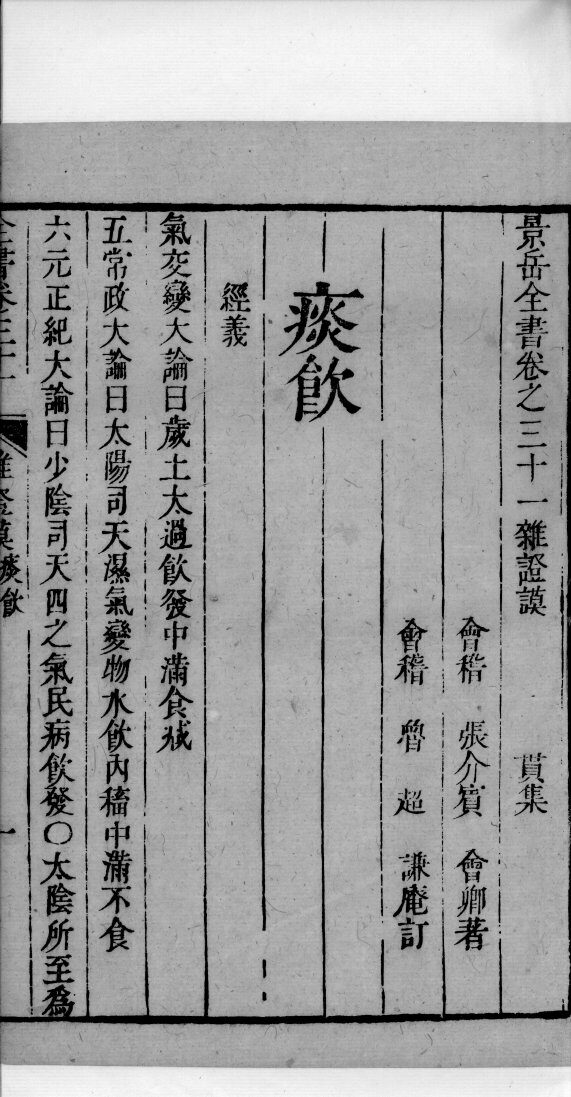 景岳全書卷之三十一雜證謨　貫集
會稽　張介賓　會卿著
會稽　魯超　謙庵訂
痰飲
經義
氣交變大論曰歲土太過飲發中滿食減
五常政大論曰太陽司天濕氣變物水飲内稸中滿不食
六元正紀大論曰少陰司天四之氣民病飲發〇太陰所至爲
全書卷之三十一　雜證謨痰飲　一